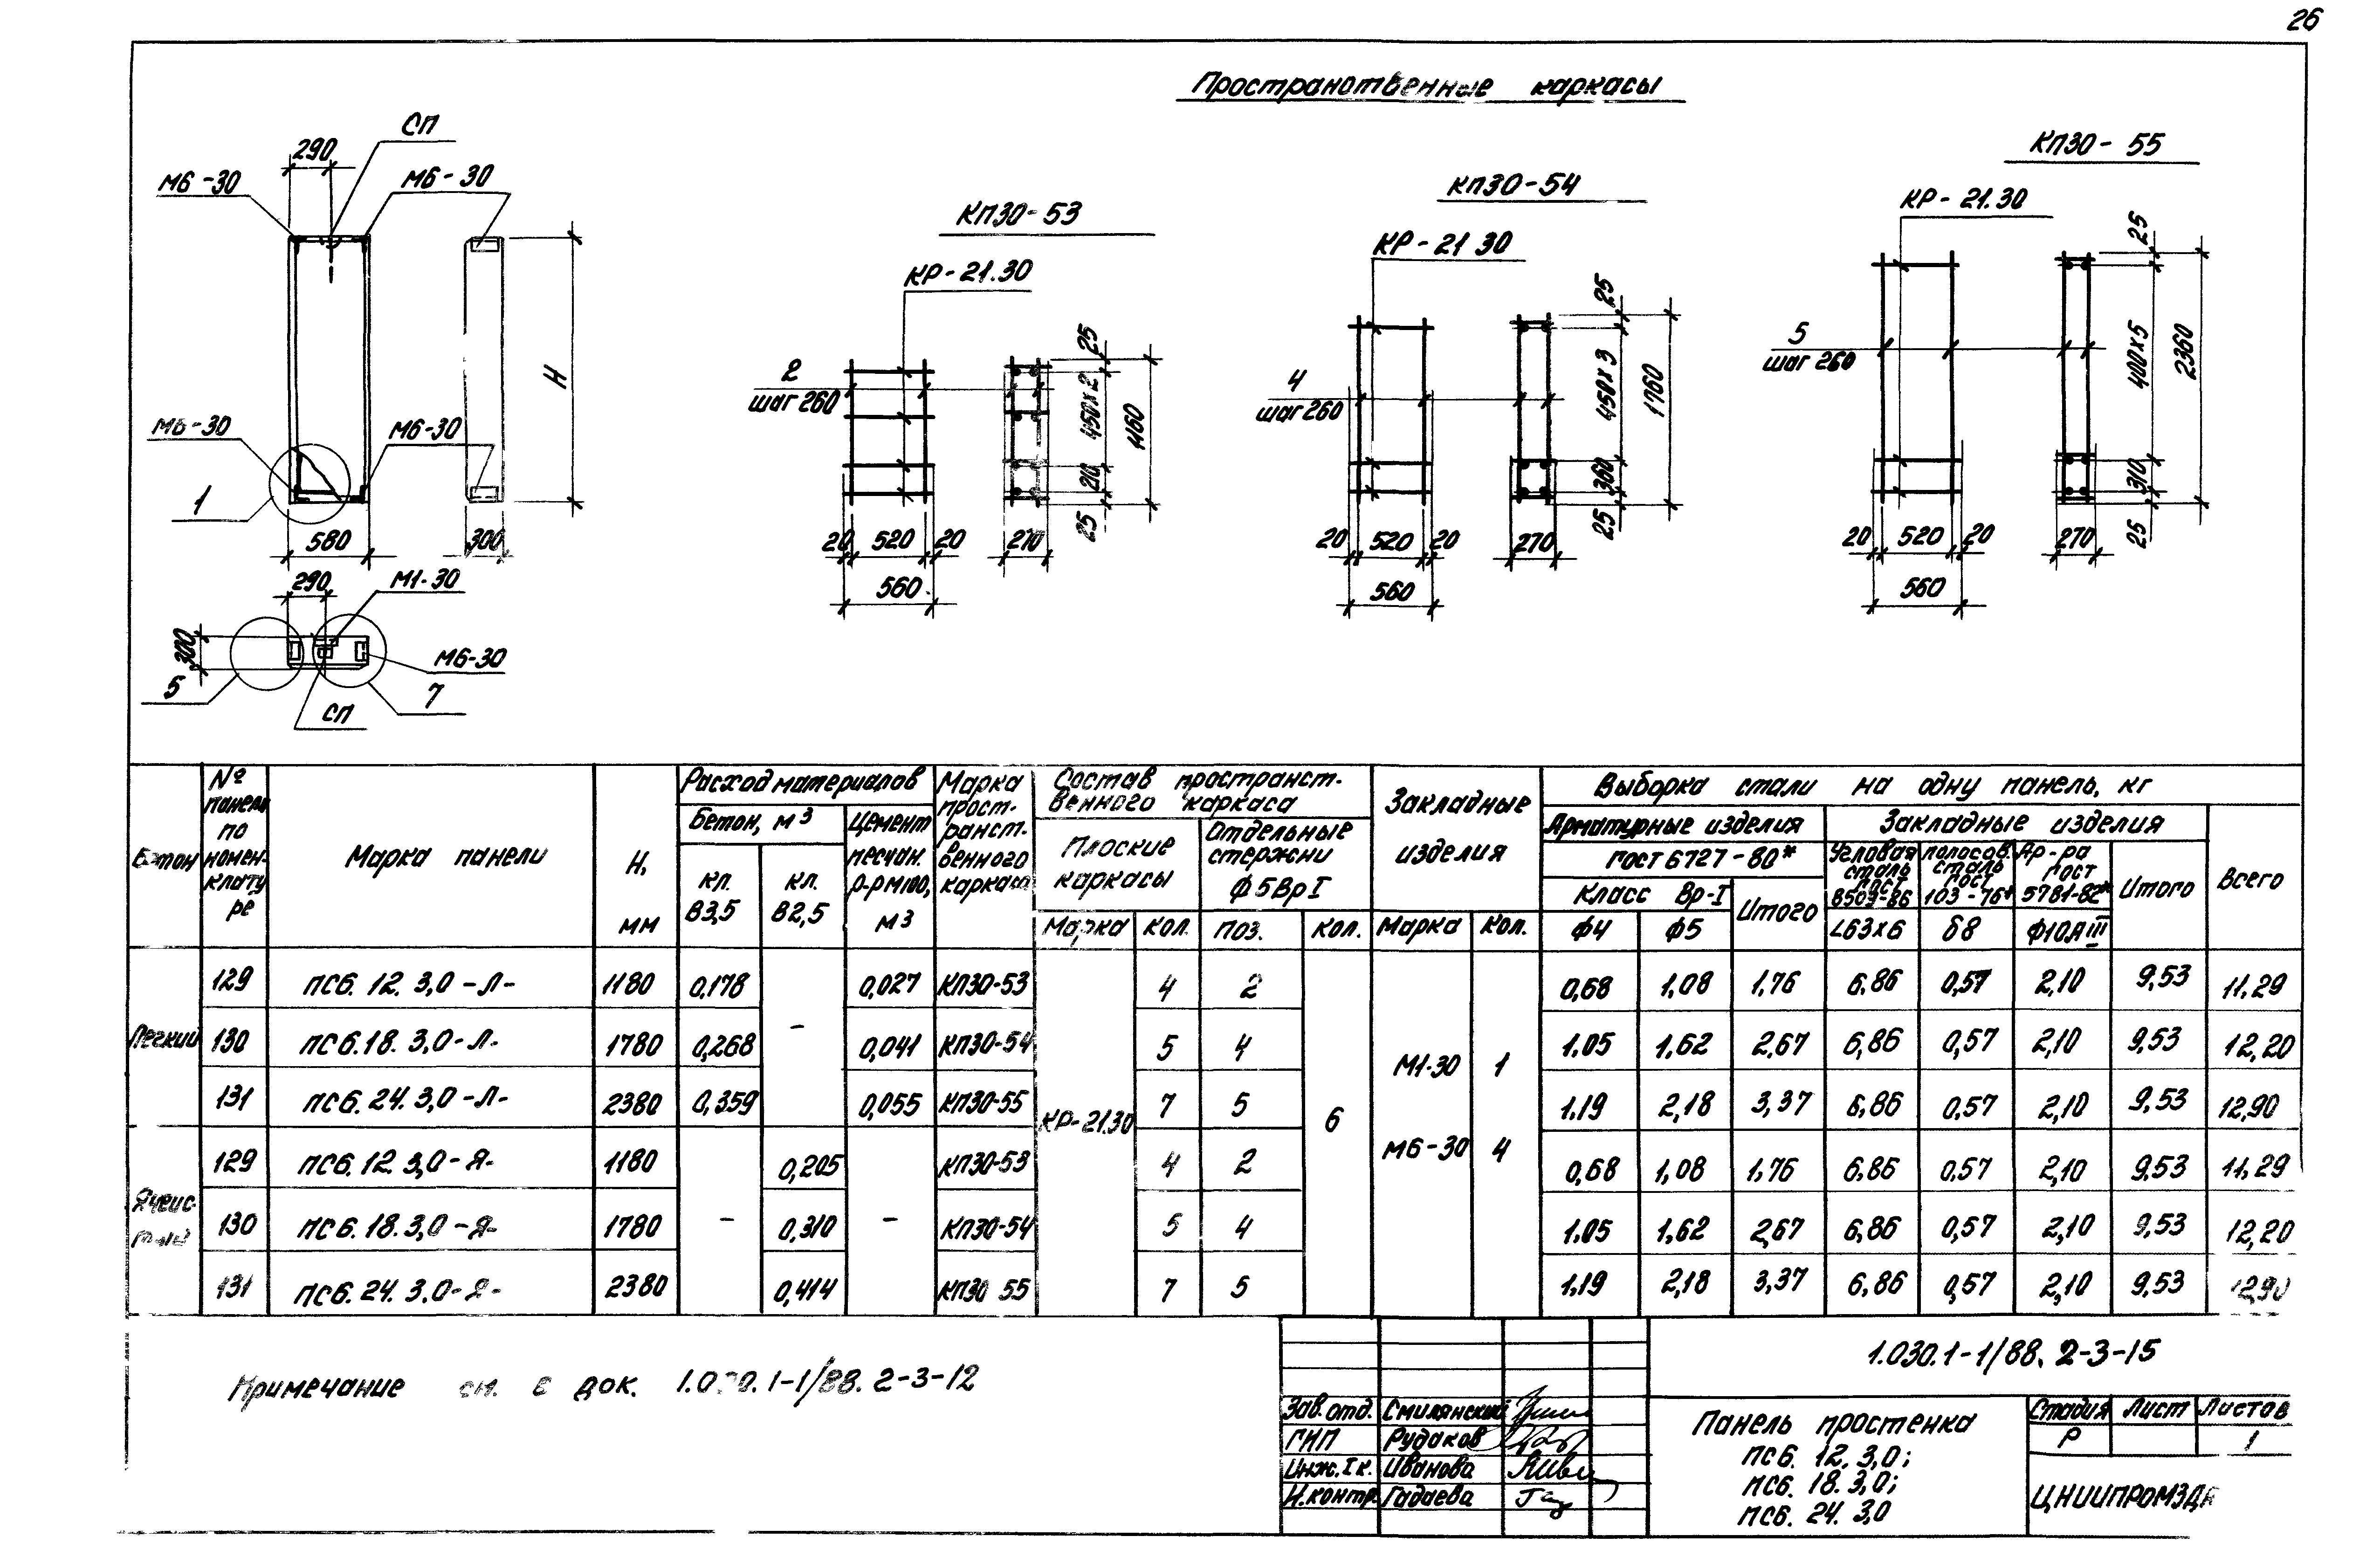 26
Пространственные каркасы
СП
290
М6-30
М6-30
Н
М6-30
М6-30
1
580
300
290
М1-30
300
М6-30
5
7
СП
КП30-53
КР-21.30
2
шаг 260
25
450х2
210
25
20
520
20
560
КП30-54
КР-21 30
4
шаг 260
25
450х3
360
25
1760
20
520
20
270
560
КП30-55
КР-21.30
5
шаг 260
25
400х5
310
25
2360
20
520
20
270
560
Бетон
№ панели по номенклатуре
Марка панели
Н, мм
Расход материалов
Бетон, м3
кл. В3,5
кл. В2,5
Цемент песчан. р-р М100, м3
Марка пространст-венного каркаса
Состав пространст-
венного каркаса
Плоские каркасы
Отдельные стержни ф5ВрI
Марка
Кол.
поз.
Кол.
Закладные изделия
Марка
Кол.
Выборка стали на одну панель, кг
Арматурные изделия
Закладные изделия
Всего
ГОСТ 6727-80*
Класс Вр-I
Итого
ф4
ф5
Угловая сталь ГОСТ 8509-86
L63х6
полосов. сталь ГОСТ 103-76*
δ8
Ар-ра ГОСТ 5781-82*
Ф10АIII
Итого
Легкий
129 ПС6.12.3,0-Л- 1180 0,178 – 0,027 КП30-53 4 2 0,68 1,08 1,76 6,86 0,57 2,10 9,53 11,29
130 ПС6.18.3,0-Л- 1780 0,268 0,041 КП30-54 5 4 1.05 1,62 2,67 6,86 0,57 2,10 9,53 12,20
131 ПС6.24.3,0-Л- 2380 0,359 0,055 КП30-55 7 5 1.19 2,18 3,37 6,86 0,57 2,10 9,53 12,90
КР-21.30
6
М1-30 1
М6-30 4
Ячеистый
129 ПС6.12 3,0-Я- 1180 0,205 КП30-53 4 2 0,68 1,08 1,76 6,86 0,57 2,10 9,53 11,29
130 ПС6.18.3,0-Я- 1780 – 0,310 – КП30-54 5 4 1.05 1,62 2,67 6,86 0,57 2,10 9,53 12,20
131 ПС6.24.3.0-Я- 2380 0,414 КП30 55 7 5 1.19 2,18 3,37 6,86 0,57 2,10 9,53 12,90
Примечание см. в док. 1.030.1-1/88. 2-3-12
1.030.1-1/88. 2-3-15
Зав. отд. Смилянский
ГИП Рудаков
Инж. I к. Иванова
Н.контр. Гадаева
Панель простенка
ПС6. 12. 3,0;
ПС6. 18. 3,0;
ПС6. 24. 3,0
Стадия Лист Листов
Р 1